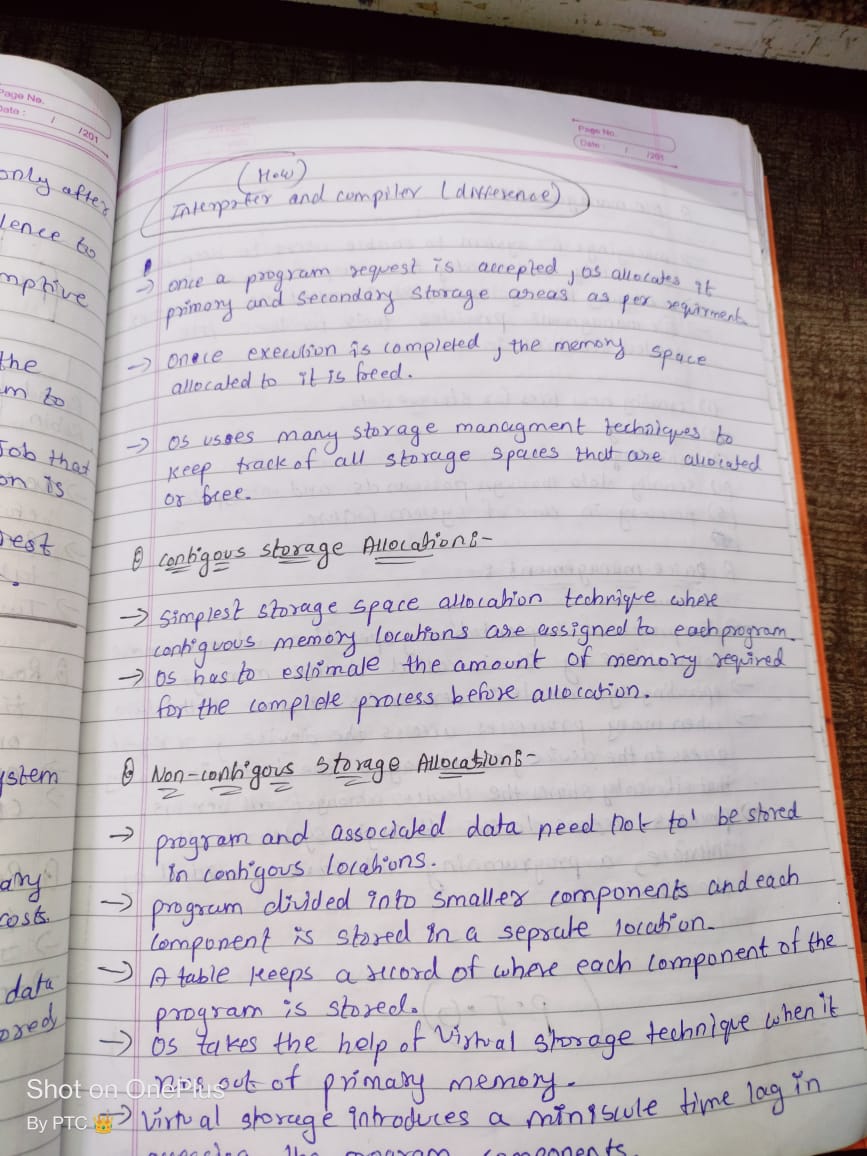 Page No.
Date : / /201
only after
lence to
mptive
the
m to
Job that
on is
rest
ystem
any
costs.
data
ored
Page No.
Date : / /201
(How)
Interpreter and compiler (difference)
→ once a program request is accepted, OS allocates it
primary and secondary storage areas as per requirment.
→ Onece execution is completed, the memory space
allocated to it is freed.
→ OS uses many storage managment techniques to
keep track of all storage spaces that are allocated
or free.
contigous storage Allocation:-
→ simplest storage space allocation technique where
contiguous memory locations are assigned to each program.
→ OS has to estimate the amount of memory required
for the complete process before allocation.
Non-contigous storage Allocation:-
→ program and associated data need not to be stored
in contigous locations.
→ program divided into smaller components and each
component is stored in a seprate location.
→ A table keeps a record of where each component of the
program is stored.
→ OS takes the help of Virtual storage technique when it
runs out of primary memory.
→ Virtual storage introduces a miniscule time lag in
the program components.
Shot on OnePlus
By PTC 👑